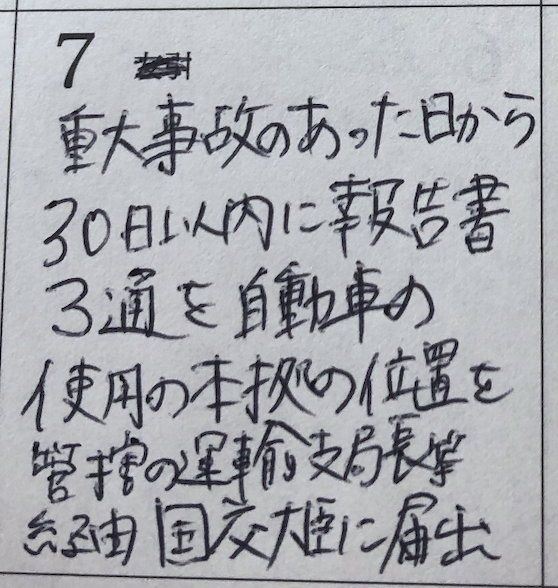 7
重大事故のあった日から
30日以内に報告書
3通を自動車の
使用の本拠の位置を
管轄の運輸支局長等
経由国交大臣に届出